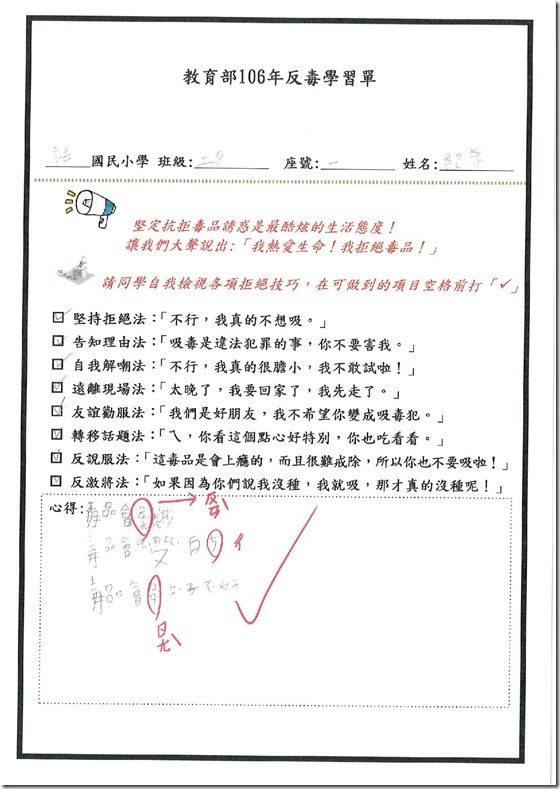 教育部106年反毒學習單
國民小學 班級: 二 座號: 一 姓名:
堅定抗拒毒品誘惑是最酷炫的生活態度！
讓我們大聲說出:「我熱愛生命！我拒絕毒品！」
請同學自我檢視各項拒絕技巧，在可做到的項目空格前打「✓」
堅持拒絕法：「不行，我真的不想吸。」
告知理由法：「吸毒是違法犯罪的事，你不要害我。」
自我解嘲法：「不行，我真的很膽小，我不敢試啦！」
遠離現場法：「太晚了，我要回家了，我先走了。」
友誼勸服法：「我們是好朋友，我不希望你變成吸毒犯。」
轉移話題法：「ㄟ，你看這個點心好特別，你也吃看看。」
反說服法：「這毒品是會上癮的，而且很難戒除，所以你也不要吸啦！」
反激將法：「如果因為你們說我沒種，我就吸，那才真的沒種呢！」
心得: 毒品會
毒品會
毒品會